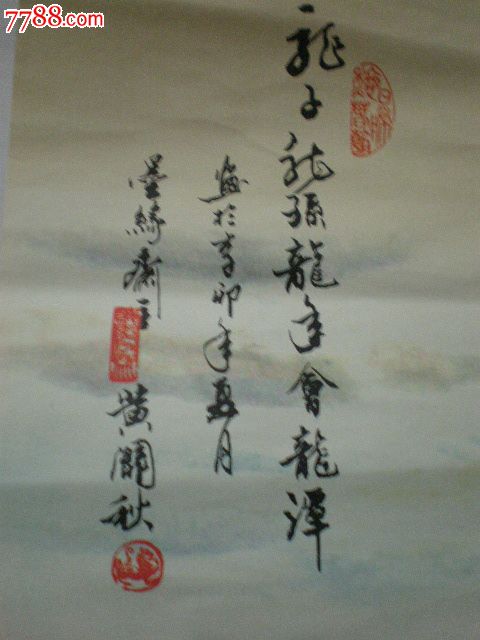 7788.com
龍子龙孫龍年會龍潭
畫於辛卯年夏月
墨緣齋主
黄秋